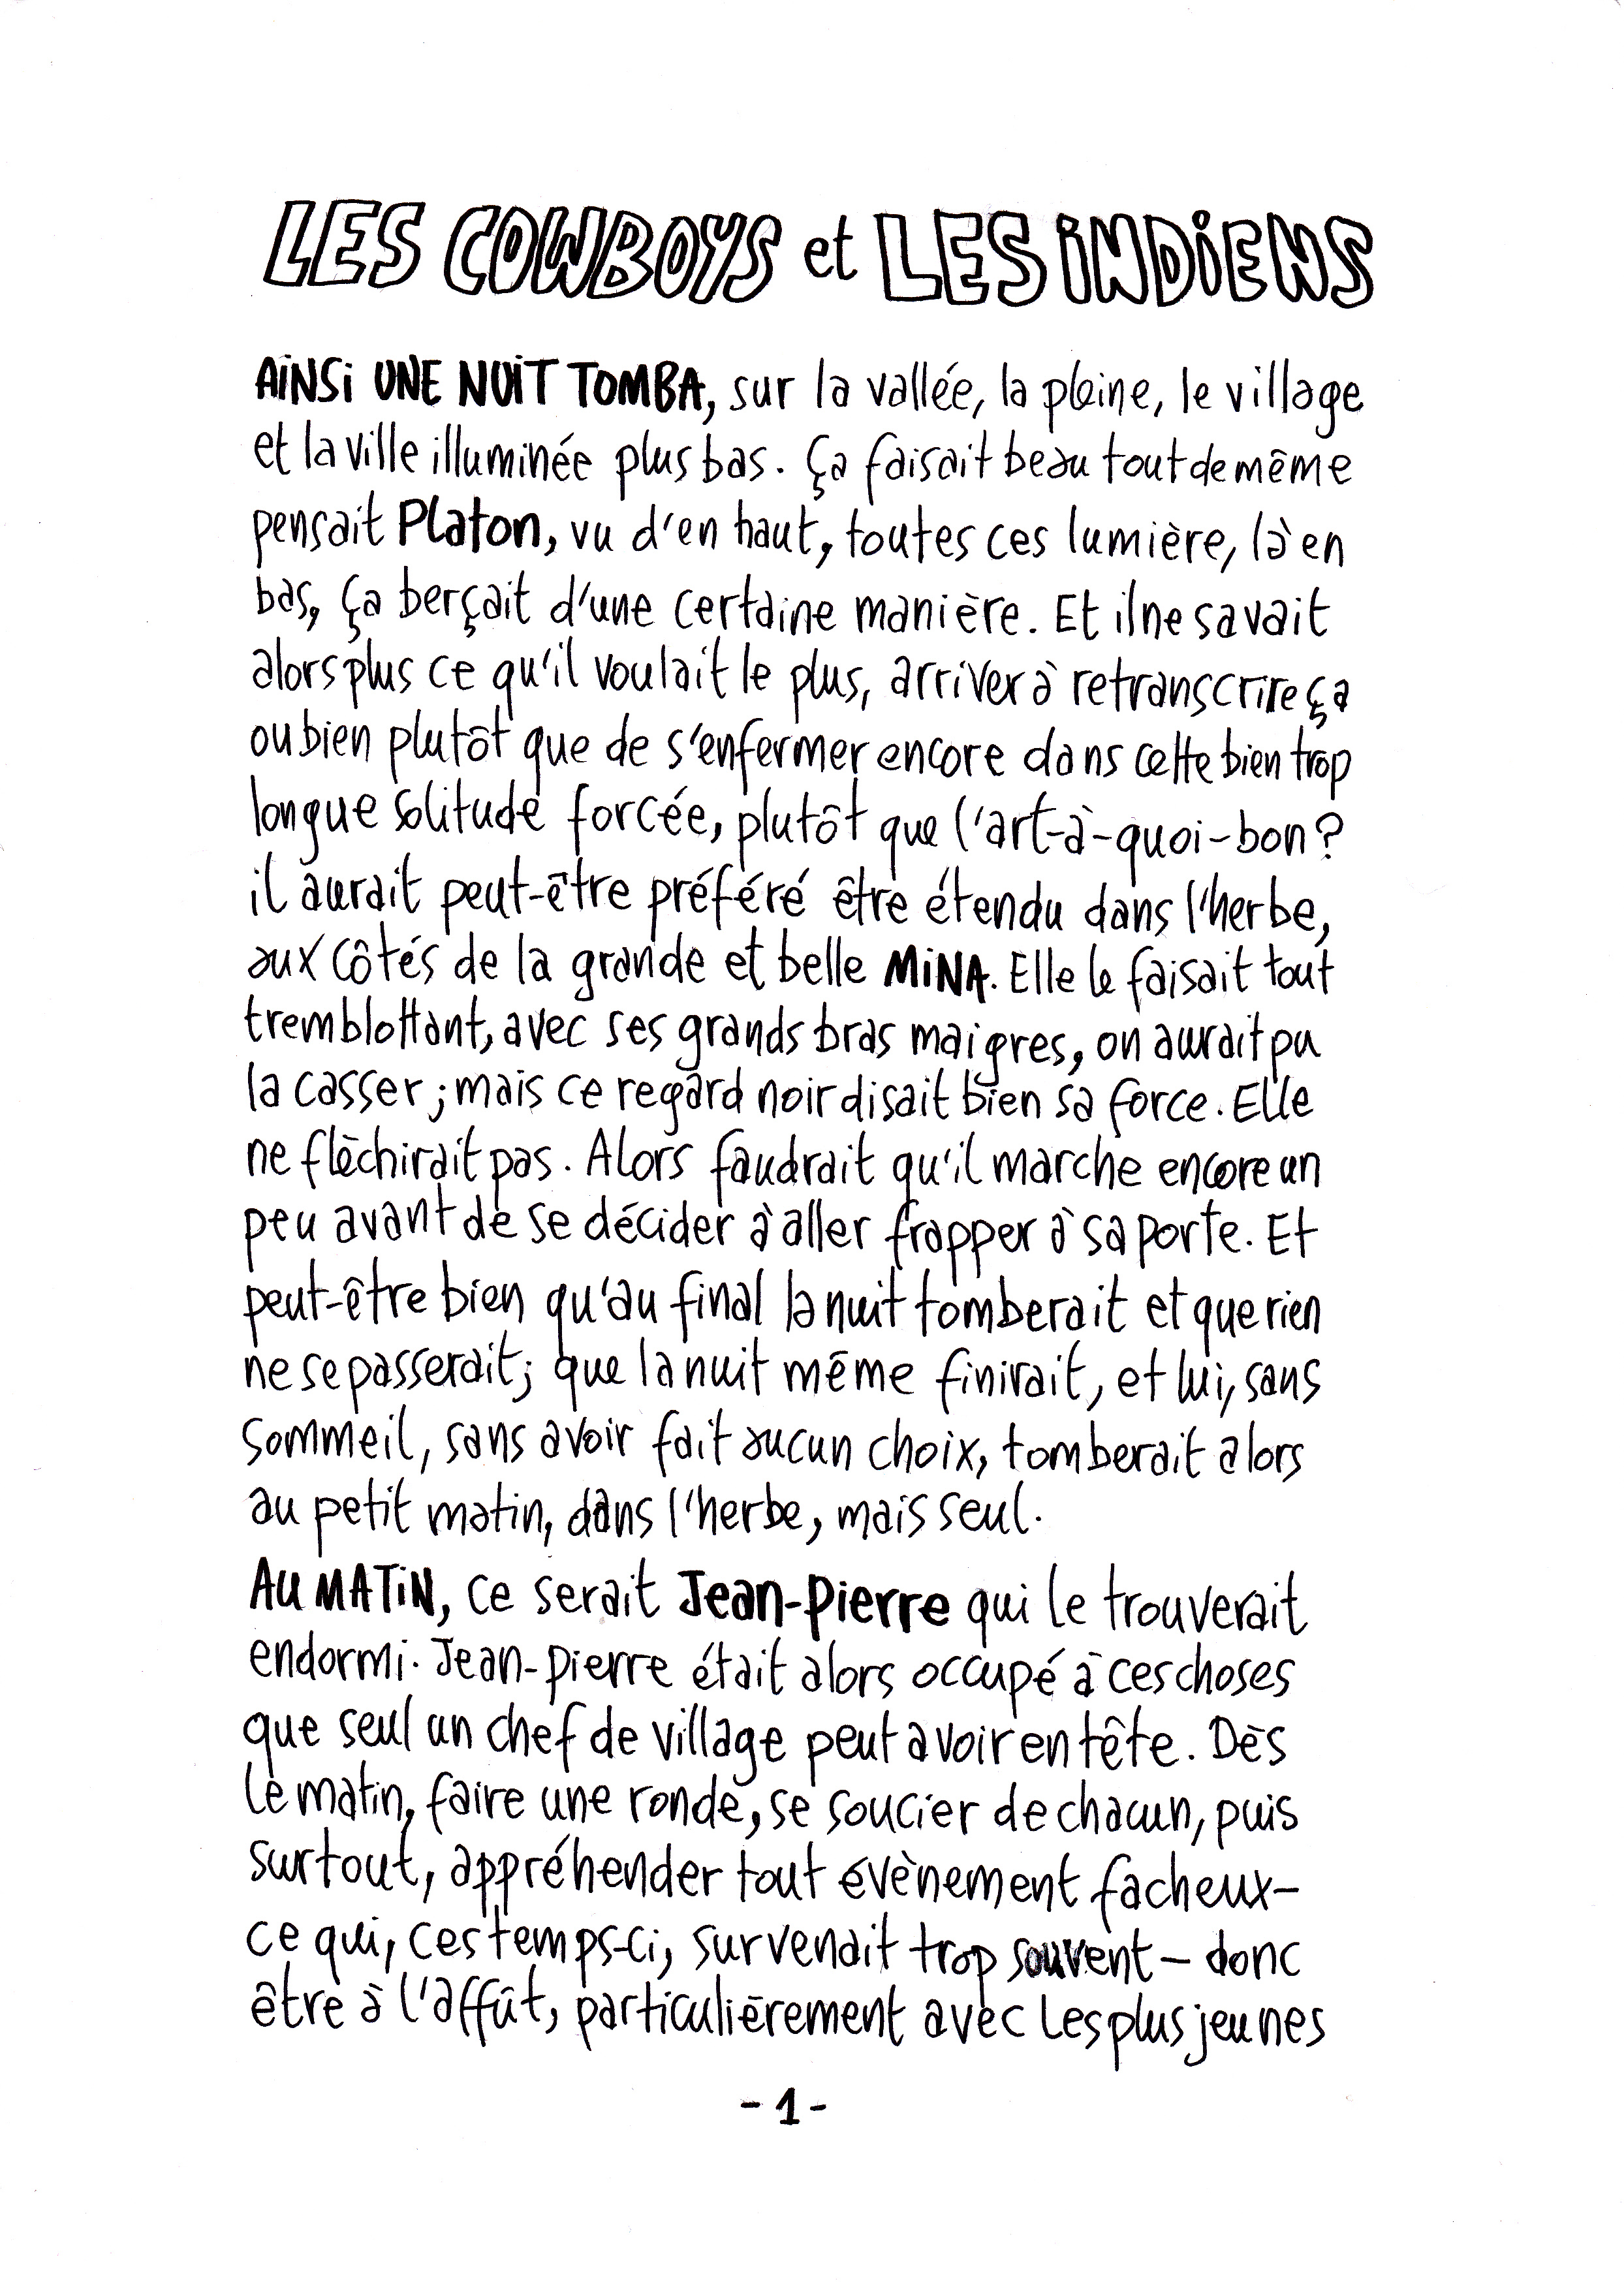 LES COWBOYS et LES INDIENS
AINSI UNE NUIT TOMBA, sur la vallée, la pleine, le village
et la ville illuminée plus bas. Ça faisait beau tout de même
pensait Platon, vu d'en haut, toutes ces lumière, là en
bas, ça berçait d'une certaine manière. Et il ne savait
alors plus ce qu'il voulait le plus, arriver à retranscrire ça
ou bien plutôt que de s'enfermer encore dans cette bien trop
longue solitude forcée, plutôt que l'art-à-quoi-bon?
il aurait peut-être préféré être étendu dans l'herbe,
aux côtés de la grande et belle MINA. Elle le faisait tout
tremblottant, avec ses grands bras maigres, on aurait pu
la casser; mais ce regard noir disait bien sa force. Elle
ne flèchirait pas. Alors faudrait qu'il marche encore un
peu avant de se décider à aller frapper à sa porte. Et
peut-être bien qu'au final la nuit tomberait et que rien
ne se passerait; que la nuit même finirait, et lui, sans
sommeil, sans avoir fait aucun choix, tomberait alors
au petit matin, dans l'herbe, mais seul.
AU MATIN, ce serait Jean-Pierre qui le trouverait
endormi. Jean-Pierre était alors occupé à ces choses
que seul un chef de village peut avoir en tête. Dès
le matin, faire une ronde, se soucier de chacun, puis
surtout, appréhender tout évènement facheux-
ce qui, ces temps-ci, survenait trop souvent - donc
être à l'affût, particulièrement avec les plus jeunes
- 1 -